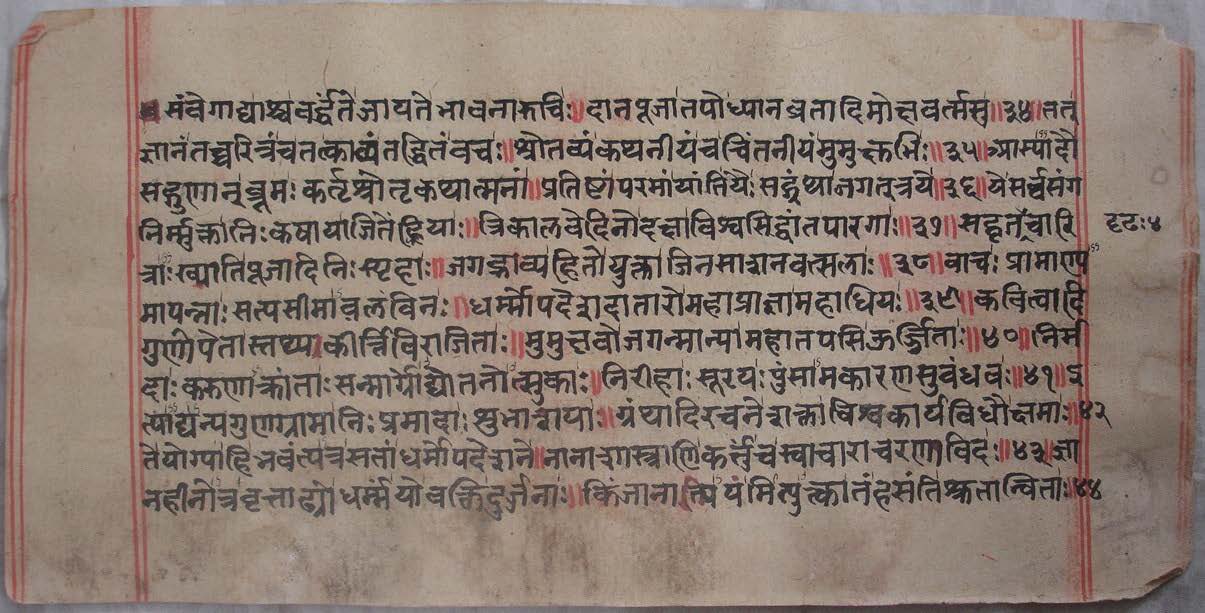 संवेगाद्याश्च वर्द्धंते जायते भावनारुचिः॥दानपूजातपोध्यानव्रतादिमोक्षवर्त्मसु॥३४॥तत्
ज्ञानं तच्चरित्रं च तत्काव्यं तद्धितं वचः॥श्रोतव्यं कथनीयं च चिंतनीयं मुमुक्षुभिः॥३५॥
सद्गुणान् ब्रूमः कर्तृश्रोतृकथात्मनां॥प्रतिष्टां परमां सद्ग्रंथा जगत्त्रये॥३६॥ये सर्व्वसंग
निर्मुक्ता निःकषाया जितेंद्रियाः॥त्रिकालवेदिनो दक्षा विश्वसिद्धांतपारगाः॥३७॥सद्दृतचारि दृढः४
त्राः ख्यातिपूजादिनिःस्पृहाः॥जगद्भव्यहितोयुक्ता जिनशासनवत्सलाः॥३८॥वाचः प्रामाण्य
मापन्नाः सत्यसीमावलंविनः॥धर्म्मोपदेशदातारो महाप्राज्ञा महाधियः॥३९॥कवित्वादि
गुणोपेतास्तप्य कीर्त्तिविराजिताः॥मुमुक्षवो जगन्मान्या महातपसि ऊर्ज्जिताः॥४०॥निर्म
दाः करुणाक्रांताः सन्मार्गोद्योतनोत्सुकाः॥निरीहाः सूरयः पुंसामकारणसुवंधवः॥४१॥इ
त्याद्यन्यगुणग्रामा निःप्रमादाः शुभाशयाः॥ग्रंथादिरचने शक्ता विश्वकार्यविधौ क्षमाः॥४२
ते योग्या हि भवंत्यत्र सतां धर्मोपदेशने॥नानाशास्त्राणि कर्तुं च स्वाचाराचरणाविदः॥४३॥ज्ञा
नहीनो त्र वृत्ताढ्यो धर्म्मं यो वक्ति दुर्ज्जनाः॥किं जानात्ययमित्युक्त्वा तं हसंति